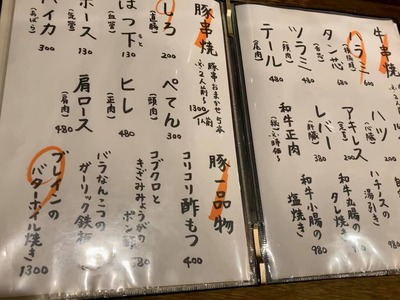 牛串焼
ハラミ
600
タン芯
テール
(尾肉)
480
ツラミ
(頬肉)
480
ハツ
(心臓)
アキレス
200
レバー
(肝臓)
380
和牛正肉
ハチノスの
湯引き
和牛丸腸の
タレ焼き
980
和牛小腸の
塩焼き
980
豚串焼
豚串おまかせ5本
1300/1人前
しろ
(直腸)
200
ぺてん
(頭肉)
300
はつ下
(血管)
ヒレ
(正肉)
480
ホース
(気管)
肩ロース
(肩肉)
480
豚一品物
コリコリ酢もつ
400
コブクロと
きざみみょうがの
ポン酢
バラなんこつの
ガーリック鉄板
ブレインの
バターホイル焼き
1300